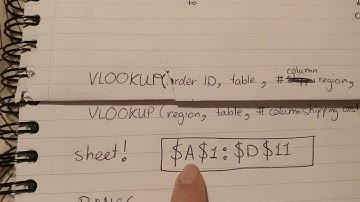 to
VLOOKUP(order ID, table, # column region,
VLOOKUP (region, table, # column shipping cost
sheet! $A$1:$D$11